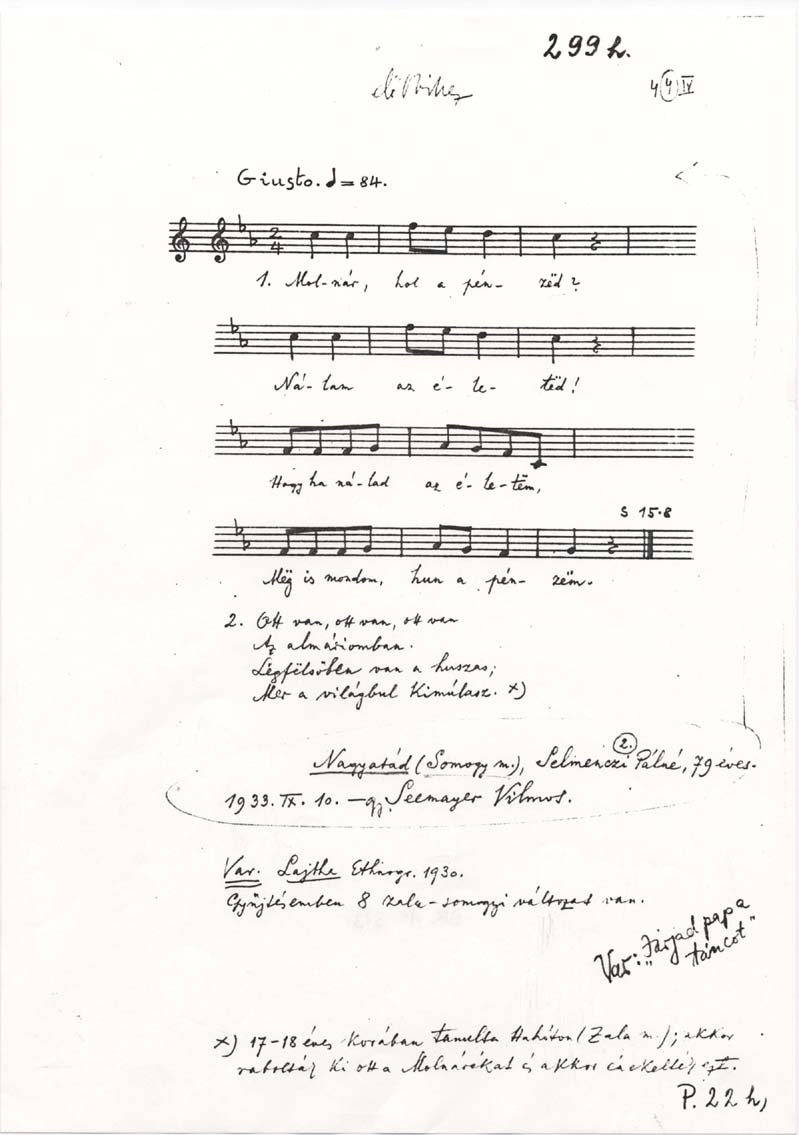 299 h.
4 4 IV
Giusto. ♩ = 84.
2
4
1. Mol-nár, hol a pén- zëd?
Ná- lam az é- le- tëd!
Hogy ha ná-lad az é- le-tëm,
S 15·8
Még is mondom, hun a pén- zëm.
2. Ott van, ott van, ott van
Az almáriomban.
Légfëlsőben van a huszas;
Mer a világbul kimúlasz. x)
2.
Nagyatád (Somogy m.), Selmenczi Pálné, 79 éves.
1933. IX. 10. – gy. Seemayer Vilmos.
Var. Lajtha Ethnogr. 1930.
Gyűjtésemben 8 zala-somogyi változat van.
Var: „Járjad papa
táncot"
x) 17-18 éves korában tanulta Hahóton (Zala m.); akkor
rabolták ki ott a Molnárékat és akkor ezt.
P. 22 h,